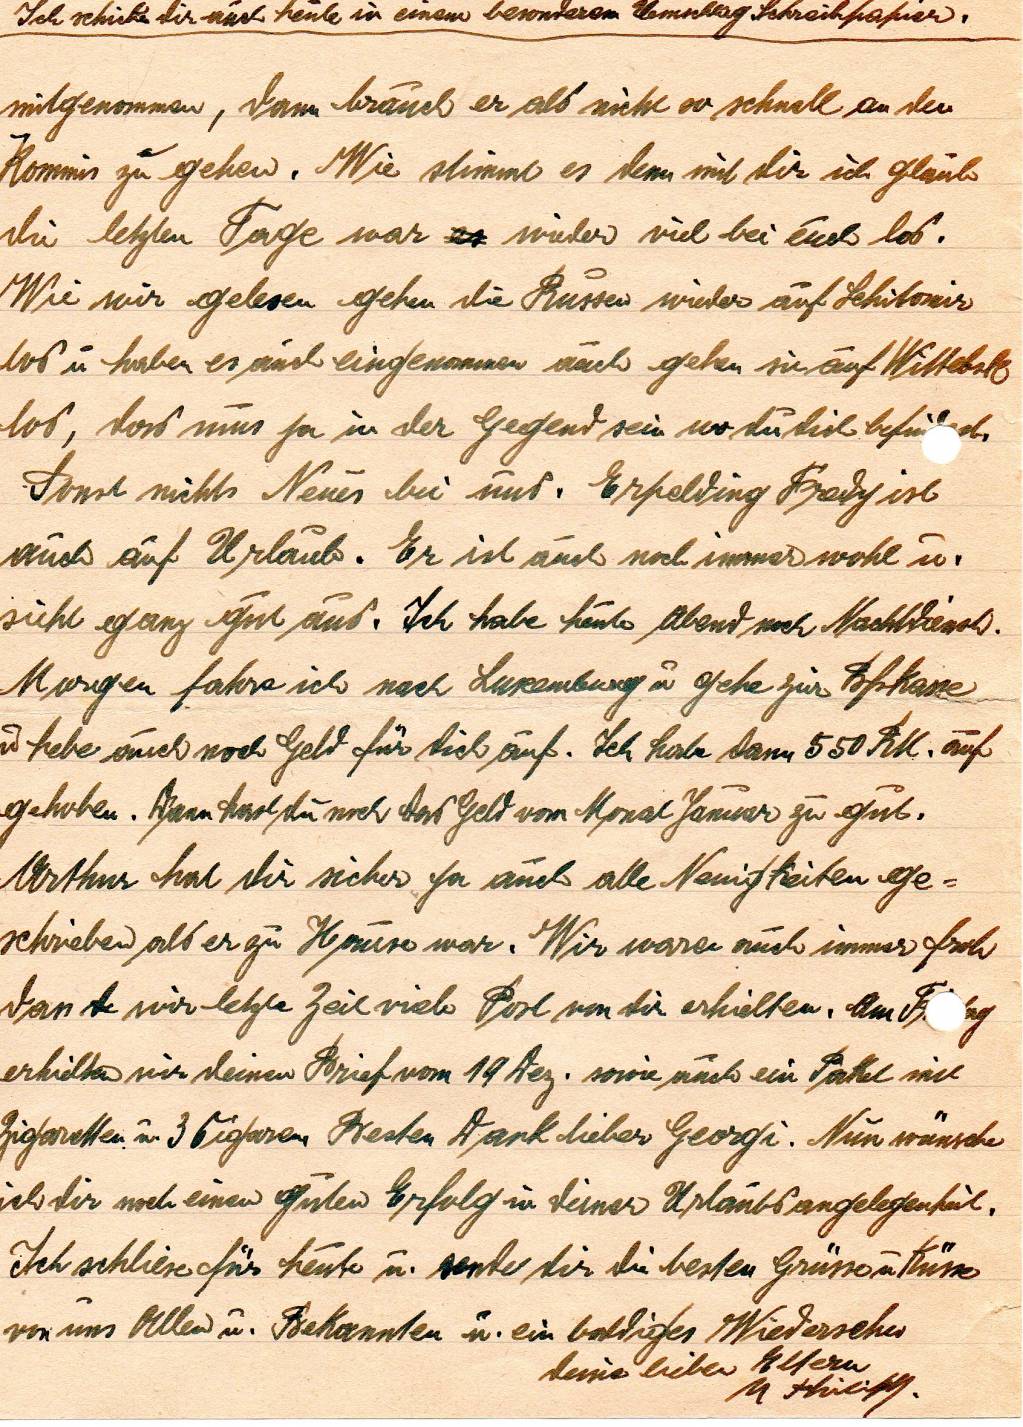 Ich schicke dir auch heute in einem besonderem Umschlag Schreibpapier.
mitgenommen, dann brauch er als nicht so schnell an den
Kommis zu gehen. Wie stimmt es denn mit dir ich glaub
die letzten Tage war wieder viel bei euch los.
Wie wir gelesen gehen die Russen wieder auf Schitomir
los u haben es auch eingenommen auch gehen sie auf Wittebsk
los, das mus ja in der Gegend sein wo du dich befindest.
Sonst nichts Neues bei uns. Erpelding Fredy ist
auch auf Urlaub. Er ist auch noch immer wohl u.
sieht ganz gut aus. Ich habe heute Abend noch Nachtdienst.
Morgen fahre ich nach Luxemburg u gehe zur
u hebe auch noch Geld für dich auf. Ich habe dann 550 RM. auf
gehoben. Dann hast du noch das Geld vom Monat Januar zu gut.
Arthur hat dir sicher ja auch alle Neuigkeiten ge=
schrieben als er zu Hause war. Wir waren auch immer froh
dan wir letzte Zeit viele Post von dir erhielten. Am
erhielten wir deinen Brief vom 19 Dez. sowie auch ein Paket mit
Zigaretten u. 3 Cigaren Besten Dank lieber Georgi. Nun wünsche
ich dir noch einen guten Erfolg in deiner Urlaubsangelegenheit.
Ich schliese für heute u. sende dir die besten Grüsse u Küsse
von uns Allen u. Bekannten u. ein baldiges Wiedersehn
deine lieben Eltern